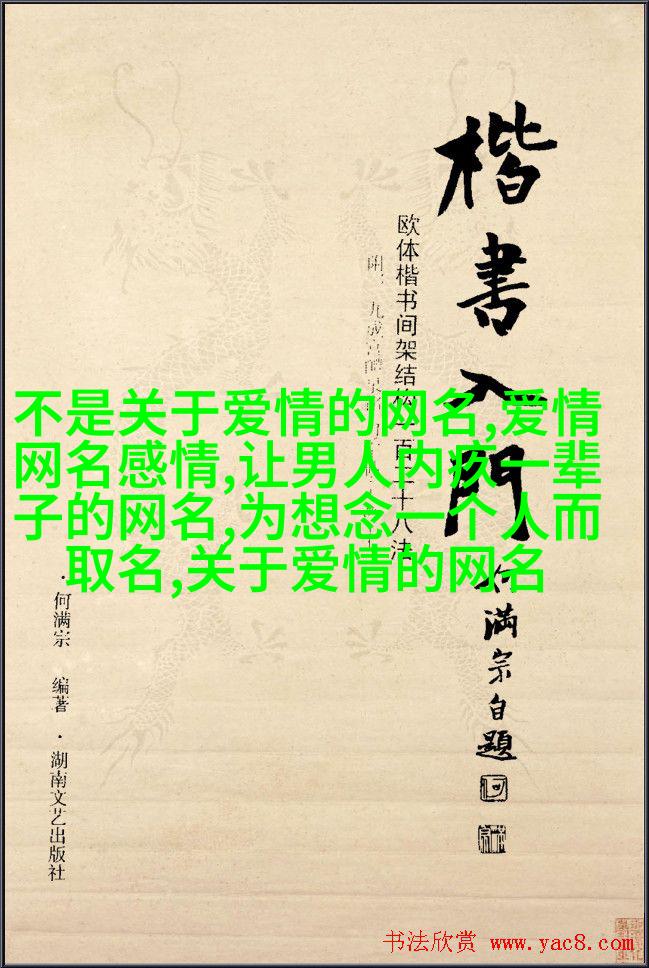 楷書入門
滿宗自題
欧体楷书间架结 百 十八法
不是关于爱情的网名,爱情
网名感情,让男人内疚一辈
子的网名,为想念一个人而
取名,关于爱情的网名
·何满宗 编著·湖南文艺出版社
书法欣赏 www.yac8.com